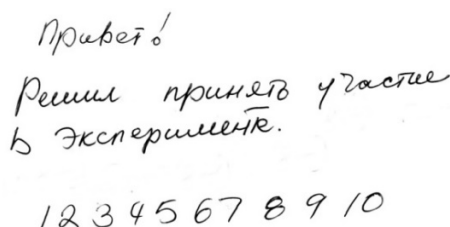 Привет!
Решил принять участие
в эксперименте.
1 2 3 4 5 6 7 8 9 10